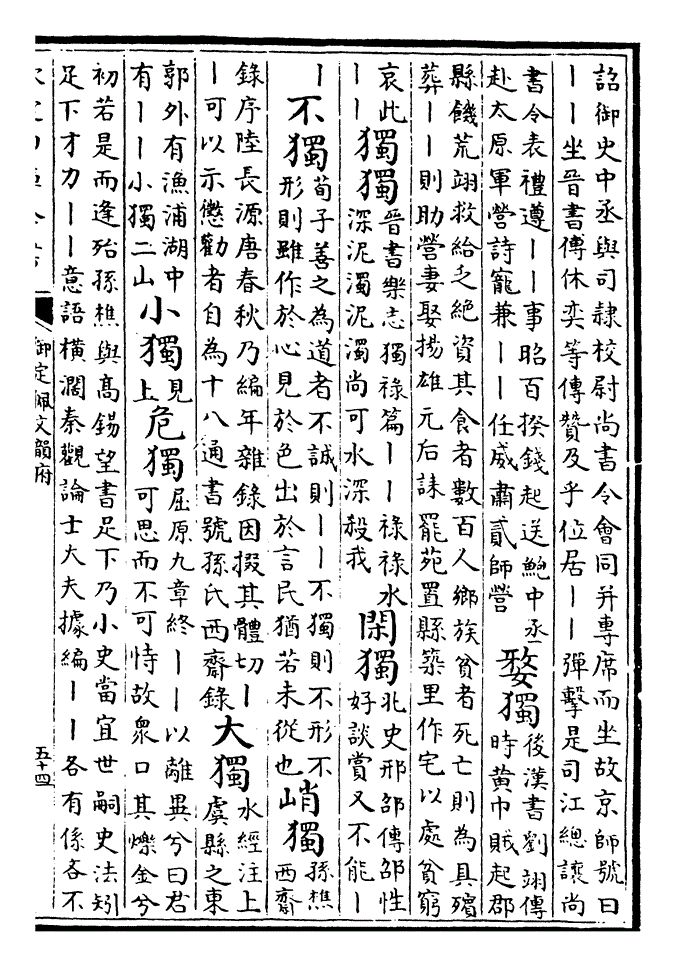 詔御史中丞與司隸校尉尚書令會同并專席而坐故京師號曰
丨丨坐晉書傅休奕等傳贊及乎位居丨丨彈擊是司江總讓尚
書令表禮遵丨丨事昭百揆錢起送鮑中丞
赴太原軍營詩寵兼丨丨任威肅貳師營
嫠獨
後漢書劉翊傳
時黃巾賊起郡
縣饑荒翊救給乏絶資其食者數百人鄉族貧者死亡則為具殯
葬丨丨則助營妻娶揚雄元后誄罷苑置縣築里作宅以處貧窮
哀此
丨丨
獨獨
晉書樂志獨祿篇丨丨祿祿水
深泥濁泥濁尚可水深殺我
閑獨
北史邢邵傳邵性
好談賞又不能丨
丨
不獨
荀子善之為道者不誠則丨丨不獨則不形不
形則雖作於心見於色出於言民猶若未從也
峭獨
孫樵
西齋
錄序陸長源唐春秋乃編年雜錄因掇其體切丨
丨可以示懲勸者自為十八通書號孫氏西齋錄
大獨
水經注上
虞縣之東
郭外有漁浦湖中
有丨丨小獨二山
小獨
見
上
危獨
屈原九章終丨丨以離異兮曰君
可思而不可恃故衆口其爍金兮
初若是而逢殆孫樵與高錫望書足下乃小史當宜世嗣史法矧
足下才力丨丨意語橫濶秦觀論士大夫據編丨丨各有係吝不
御定佩文韻府
五十四